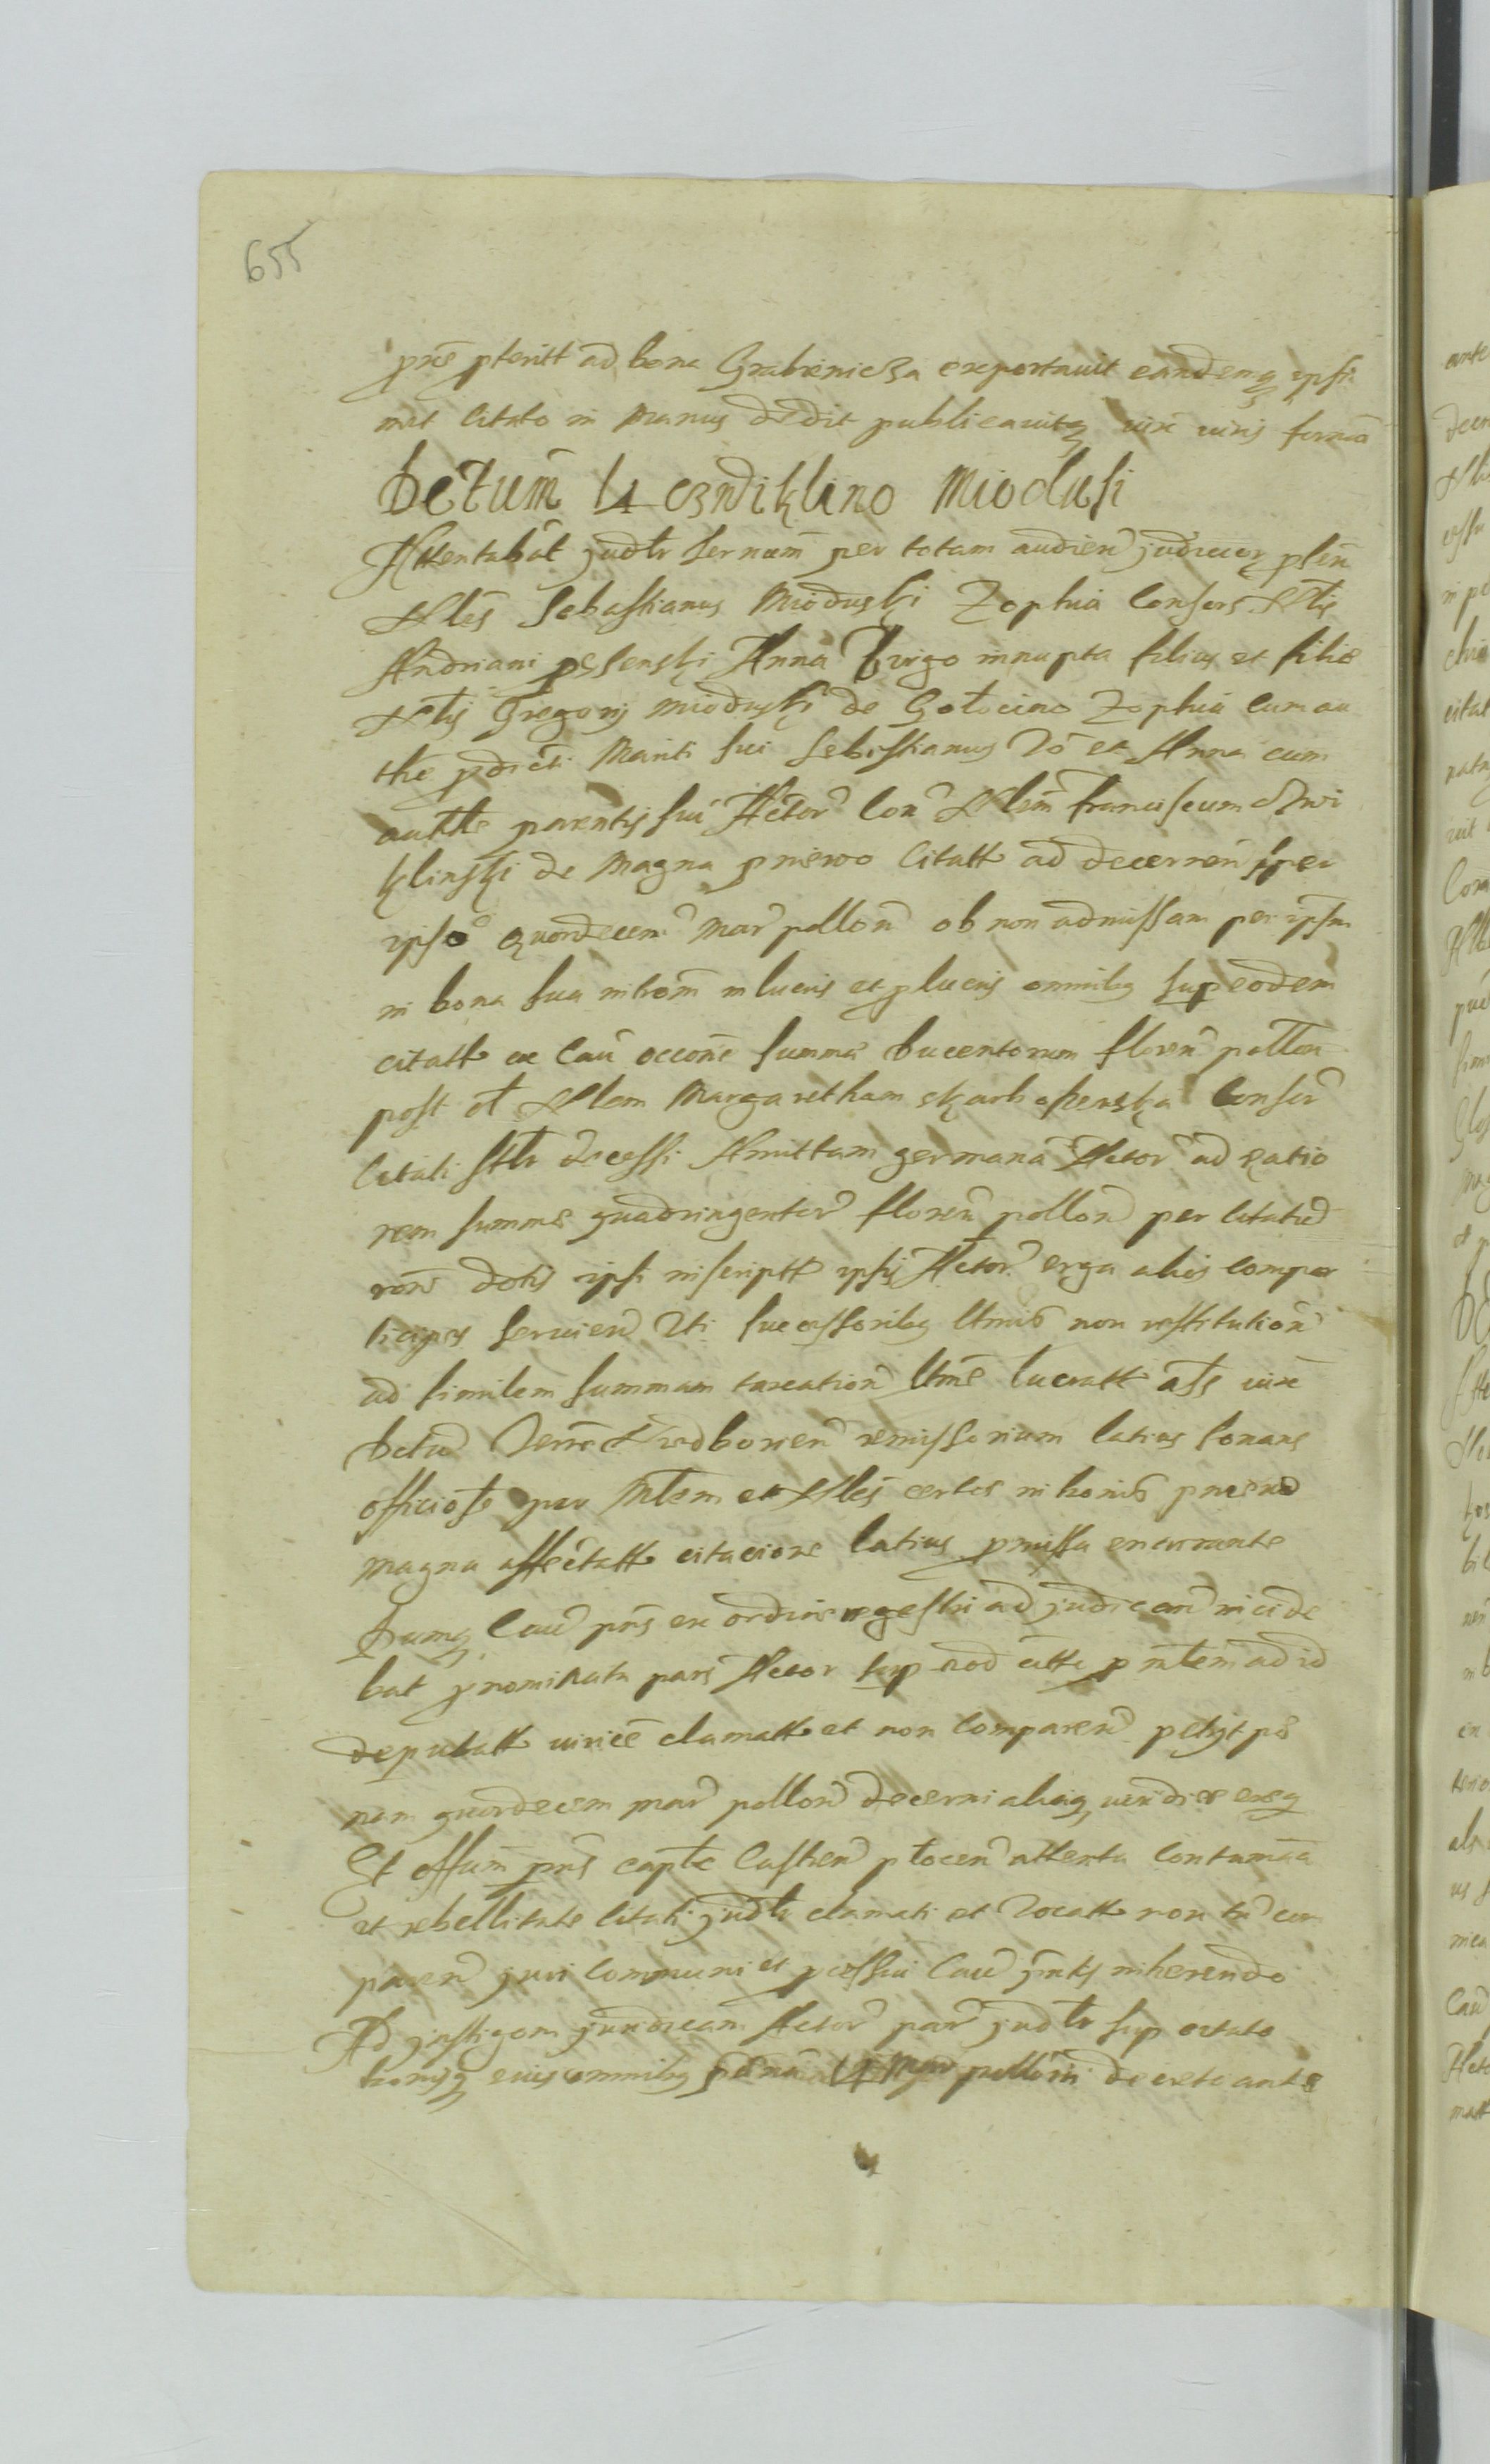 655
prn̄ pteritt ad bona Grabienicza exportauit eandemq ipsi
met Citato in manus dedit publicauitq iux̄ iuris formā
Dctum̄ 14 Mioduski
Attentabāt judtr ternum̄ per totam audien judicior ptēn
Nlēs Sebastianus Mioduski Zophia Consors Nlis
Andriani Anna Virgo innupta filius et filiē
Nlis Gregorij Mioduski de Gołocino Zophia cum au
tthē pdicti Mariti sui Sebistianus Vō et Anna cum
autthe parentis sui Actor Con Nlem̄ franciscum
klinski de Magna pniewo Citatt ad decernen super
ipsō quordecem mar pollon ob non admissam per ipsum
in bona sua intrōm in lucris et plucris omnibq sup eodem
citatt ex Cau occōne summæ Ducentorum floren pollon
post ol Nlem Margaretham Consor
Citati sttr decessi Amittam germanā Actor ad ratio
nem summæ quadringentor floren pollon per Citatū
rōne dotis ipsi inscriptt ipsis Actor erga alios compar
ticipes seruien Vti successoribq ltmis non restitution
ad similem summam taxation ltmē lucratt āts iux̄
Dctū Terrē remissorium latius sonans
officiose per Mlem et Nlēs certos in bonis pniewo
Magna affēctatt citacione latius pmissa encurrante
Dumq Cau pns ex ordine regestri ad judican incide
bat pnominata pars Actor sup nod citto p mlem ad id
deputatt iuricē clamatt et non comparen petijt pæ
nam quordecem mar pollon decerni aliaq
Et offum̄ pns captc Castren płocen attenta contumā
et rebellitate Citati judtr clamati et Vocatt non tn com
paren juri communi et pcessui Cau jntis inherendo
Ad jnstigom juridicam Actor par judtr sup citato
bonisq eius omnibq pænā 14 Mar pollon decreto ante